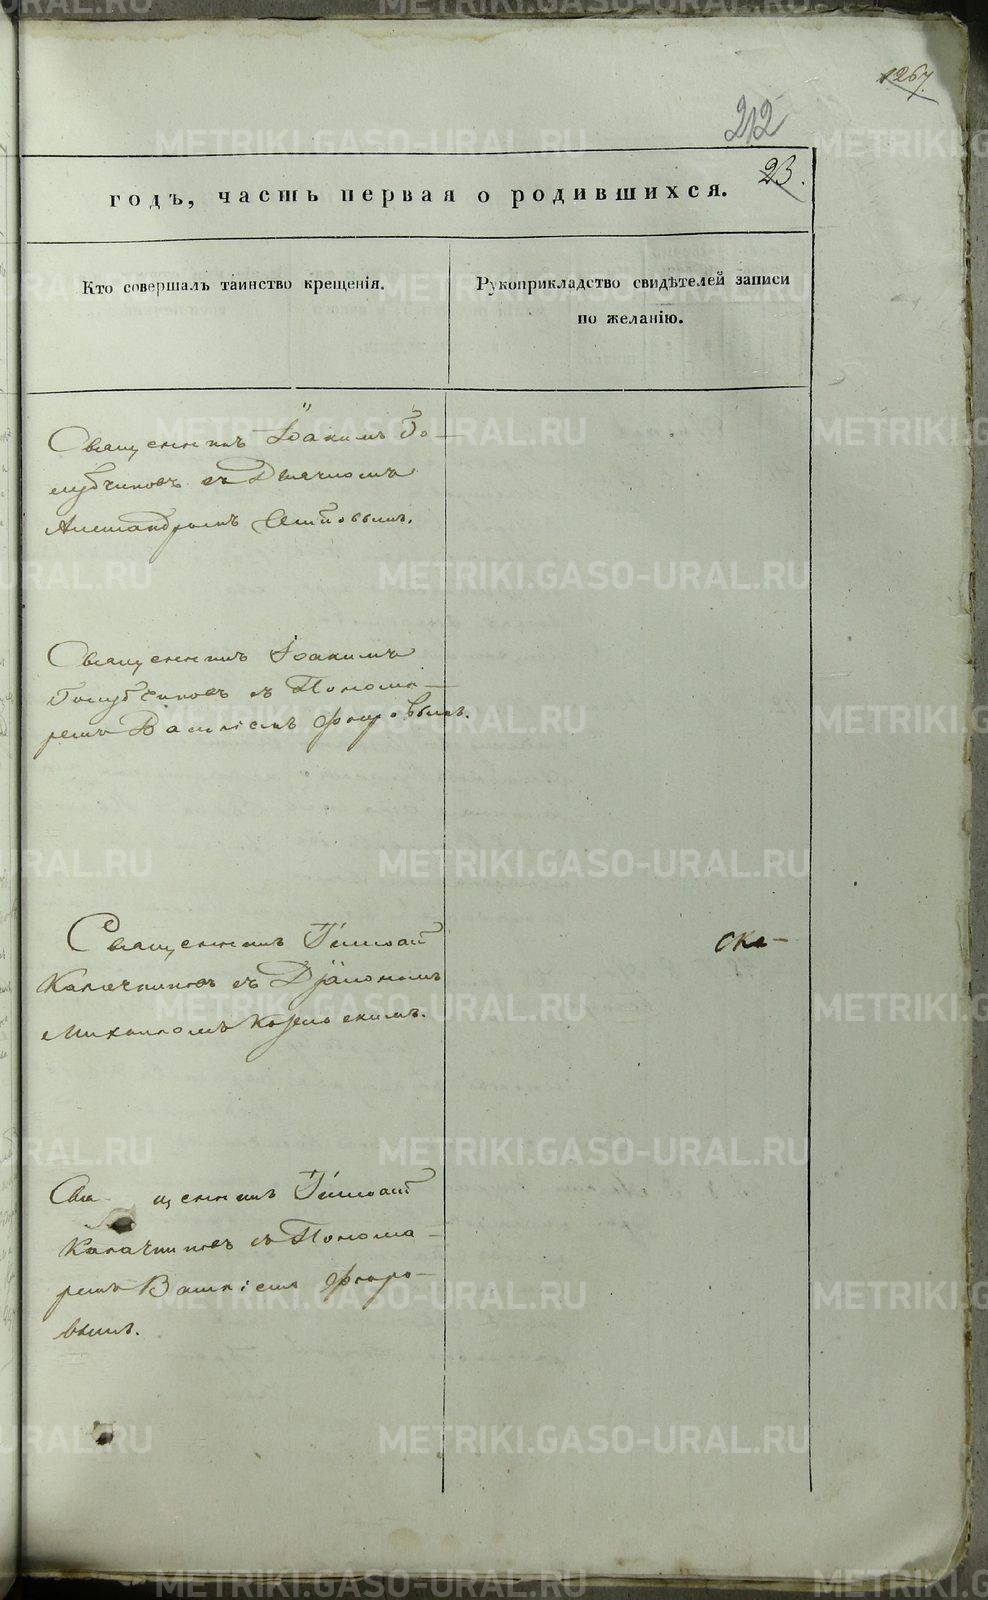 1267.
212
23.
годъ, часть первая о родившихся.
Кто совершалъ таинство крещенія.
Рукоприкладство свидѣтелей записи
по желанію.
Священникъ Іоакимъ Го-
лубчиковъ съ Дьячкомъ
Александромъ
Священникъ Іоакимъ
Голубчиковъ съ Понома-
ремъ Василіемъ Флоровымъ.
Священникъ
Калачниковъ съ Діакономъ
Михаиломъ Козельскимъ.
Ока-
Священникъ
Калачниковъ съ Понома-
ремъ Василіемъ Флоро-
вымъ.
METRIKI.GASO-URAL.RU